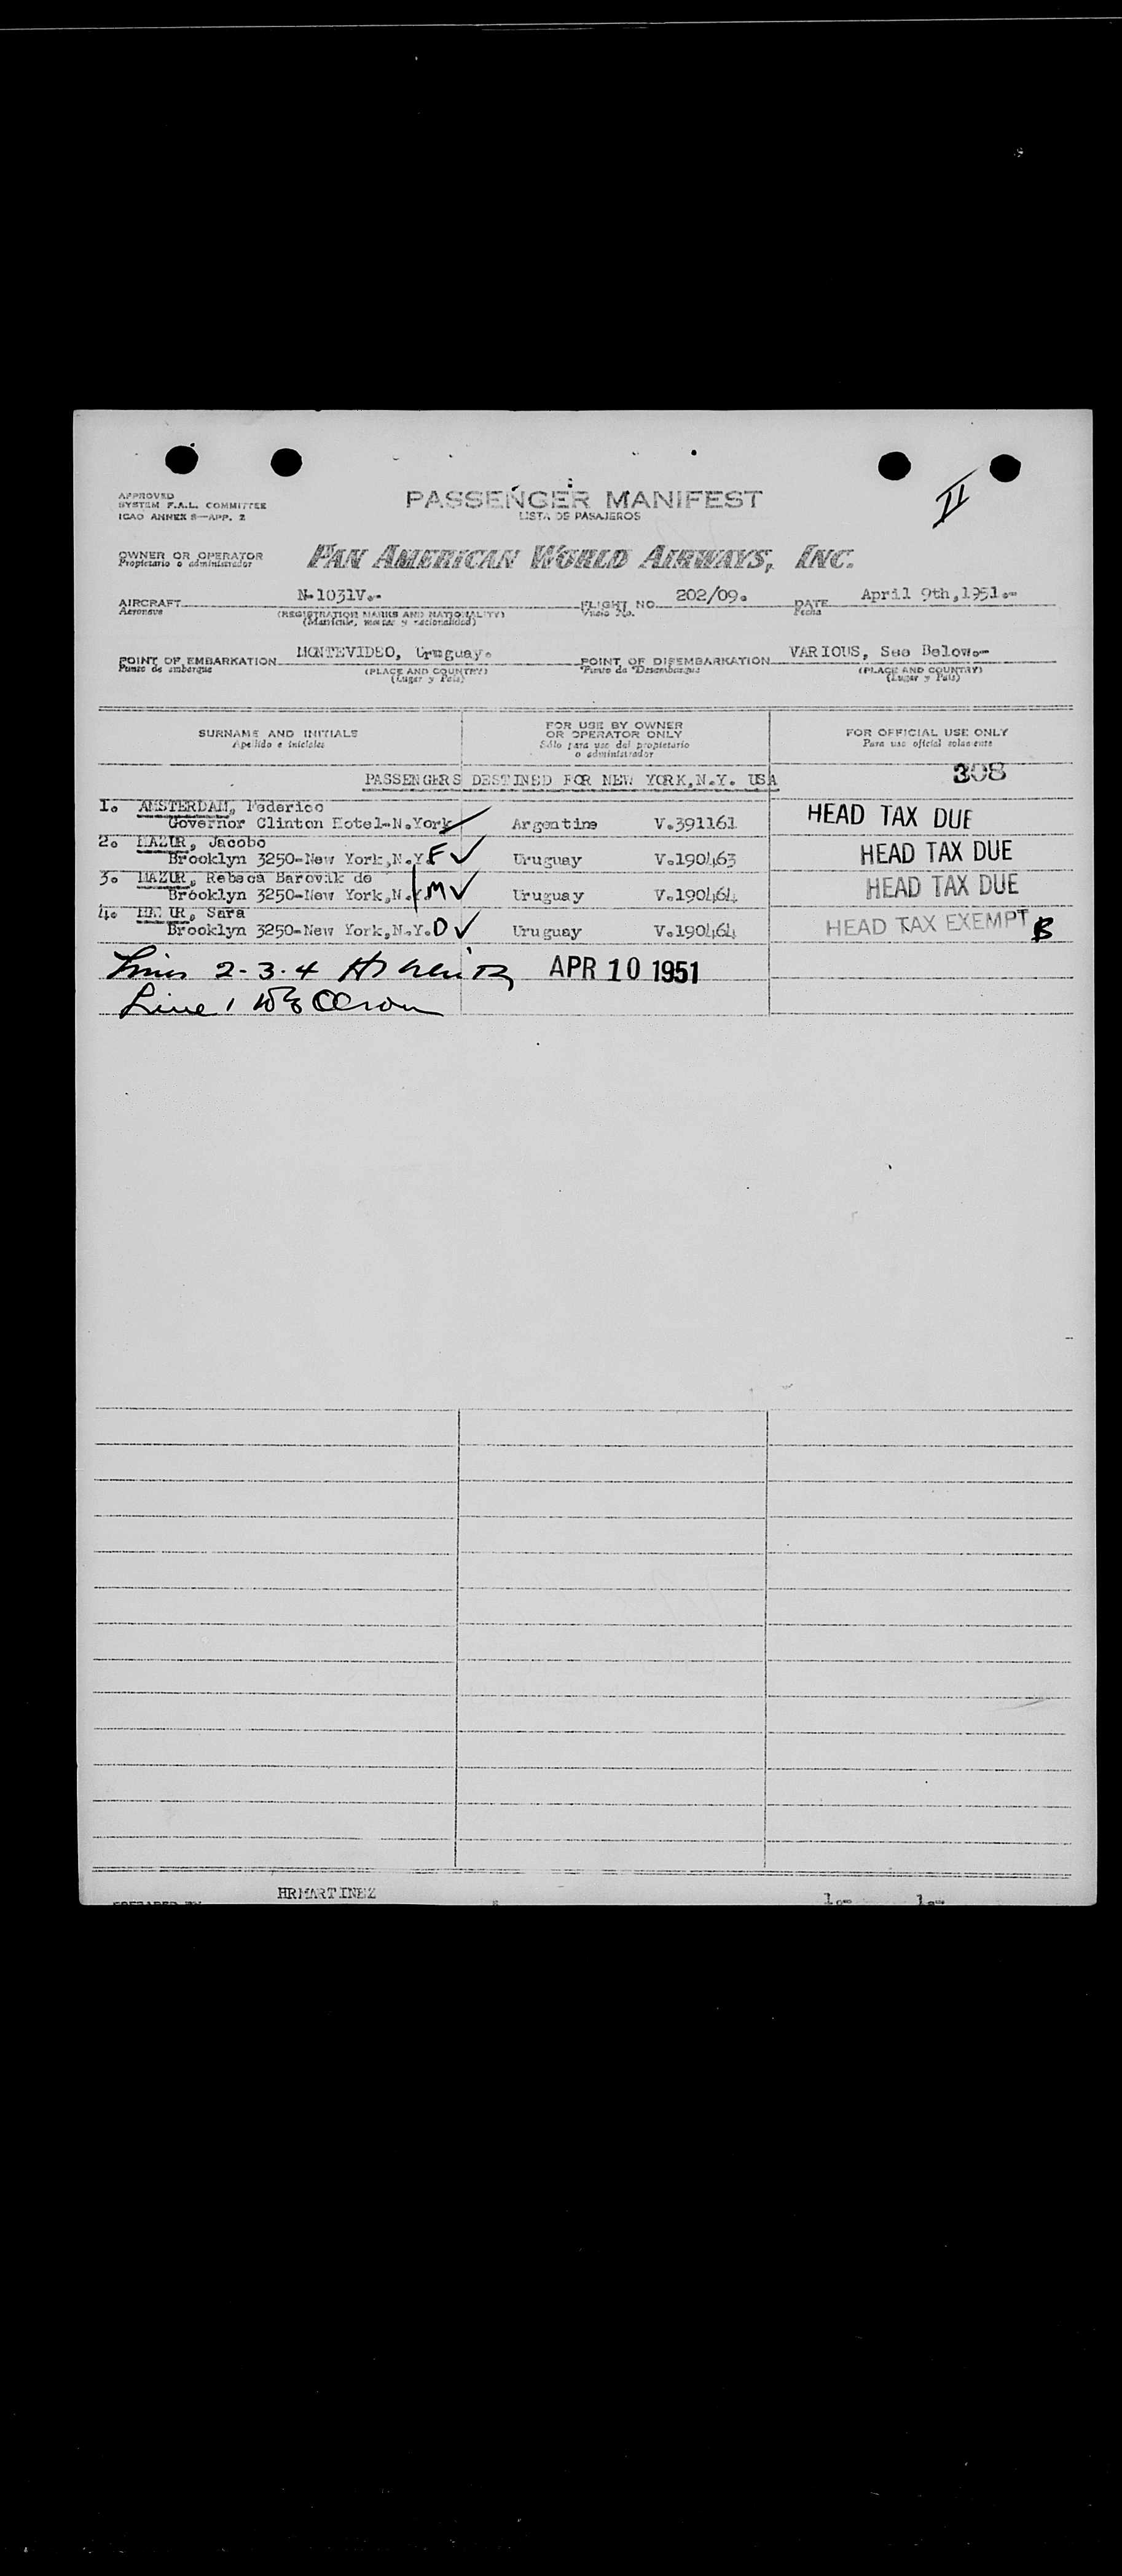 PASSENGER MANIFEST
LISTA DE PASAJEROS
II
APPROVED
SYSTEM F.A.L. COMMITTEE
ICAO ANNEX 8—APP. 2
OWNER OR OPERATOR
Propietario o administrador
PAN AMERICAN WORLD AIRWAYS, INC.
AIRCRAFT N-1031V.- FLIGHT NO. 202/09. DATE April 9th,1951.-
Aeronave (REGISTRATION MARKS AND NATIONALITY) Vuelo No. Fecha
(Matricula, marcas y nacionalidad)
POINT OF EMBARKATION MONTEVIDEO, Uruguay. POINT OF DISEMBARKATION VARIOUS, See Below.-
Punto de embarque (PLACE AND COUNTRY) Punto de Desembarque (PLACE AND COUNTRY)
(Lugar y País) (Lugar y País)
SURNAME AND INITIALS
Apellido e iniciales
FOR USE BY OWNER
OR OPERATOR ONLY
Sólo para uso del propietario
o administrador
FOR OFFICIAL USE ONLY
Para uso oficial solamente
PASSENGERS DESTINED FOR NEW YORK,N.Y. USA 308
1. AMSTERDAM, Federico
Governor Clinton Hotel-N.York Argentine V.391161 HEAD TAX DUE
2. MAZUR, Jacobo
Brooklyn 3250-New York,N.Y. F ✓ Uruguay V.190463 HEAD TAX DUE
3. MAZUR, Rebeca Barovik de
Brooklyn 3250-New York,N.Y. M ✓ Uruguay V.190464 HEAD TAX DUE
4. MAZUR, Sara
Brooklyn 3250-New York,N.Y. D ✓ Uruguay V.190464 HEAD TAX EXEMPT B
Lines 2-3-4 APR 10 1951
Line 1
HRMARTINEZ
PREPARED BY
1.- 1.-